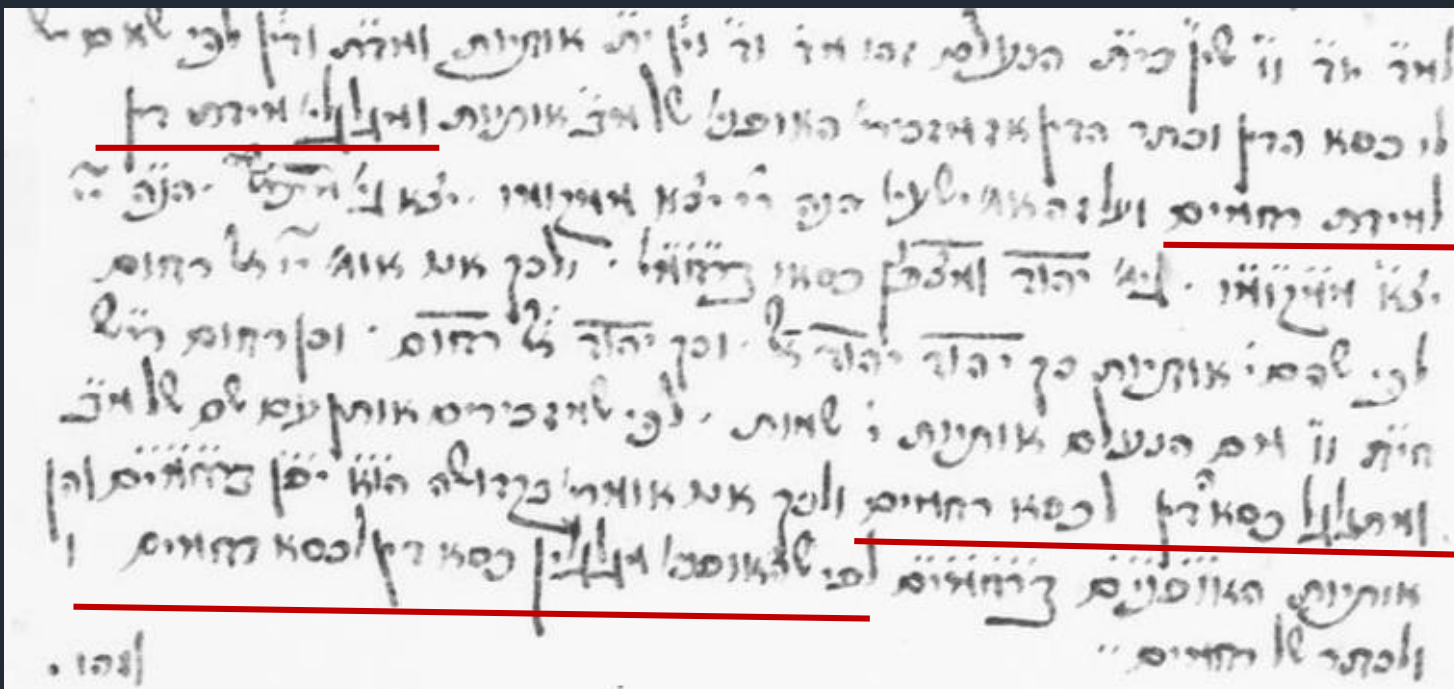 למד מד וו שין כית הנעלם זהו מד וד וין ית אותיות ומדת ודין לפי שאם יש
לו כסא הדין וכתר הדין אז מזכירי' האופני' של מב אותיות ומגלגלי' מידת דין
למידת רחמים ועל זה אמ' ישעי' הנה יי' יצא ממקומו יצא גי' הנה יי
יצא ממקומו גימ' יהוד ומצפץ כסאו ברחמ"ל ולכך אנו אומ' יי אל רחום
לפי שהם י' אותיות כך יהוד יהוד אל וכך יהוד אל רחום וכן רחום ריש
חית וו מם הנעלם אותיות י' שמות לפי שמזכירים אותן עם שם של מב
ומתגלגל כסא דין לכסא רחמים ולכך אנו אומרי' בקדושה הוא יפן ברחמים והן
אותיות האופנים ברחמים לפי שהאופני' מגלגלין כסא דין לכסא רחמים ו
ולכתר של רחמים
וזהו